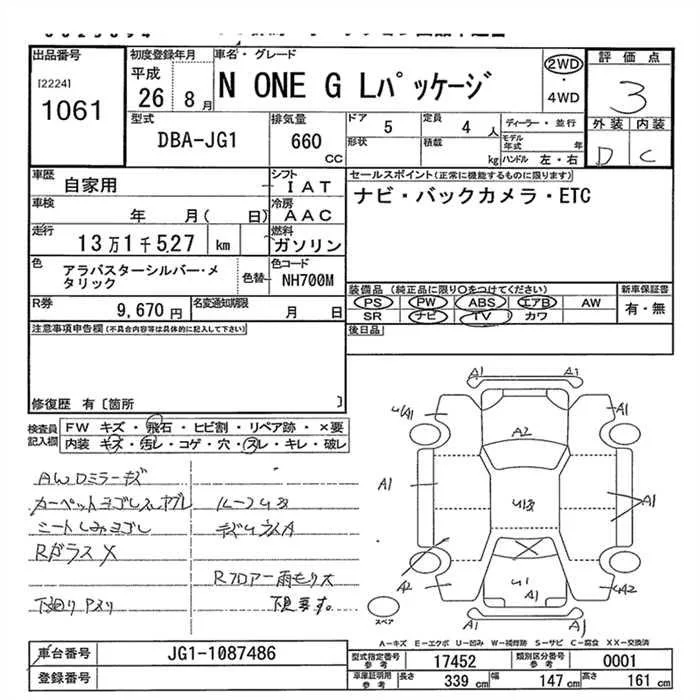 出品番号
[2224]
1061
初度登録年月
平成
26 8月
車名・グレード
N ONE G Lパッケージ
2WD
・
4WD
評価点
3
外装 内装
D C
型式
DBA-JG1
排気量
660
CC
ドア
5
定員
4 人
形状
積載
kg
ディーラー・並行
モデル年式 年
ハンドル 左・右
車歴
自家用
シフト
IAT
車検
年 月( 日)
冷房
AAC
走行
13万1千527 km
燃料
ガソリン
色
アラバスターシルバー・メタリック
色替
色コード
NH700M
R券
9,670 円
名変通知期限
月 日
セールスポイント(正常に機能するものに限ります)
ナビ・バックカメラ・ETC
装備品 (純正品に限り○をつけてください)
新車保証書
PS PW ABS エアB AW
SR ナビ TV カワ
有・無
後日品
注意事項申告欄(不具合内容等は具体的に記入して下さい)
修復歴 有〔箇所 〕
検査員
記入欄
FW キズ・飛石・ヒビ割・リペア跡・×要
内装 キズ・汚レ・コゲ・穴・スレ・キレ・破レ
AWDミラーキズ
カーペットヨゴレ
シートしみヨゴレ
Rガラス X
下廻り
Rフロアー雨もり大
A1 A1
A1
A2
A1 A1
A2
U1
A1
A1 A1
スペア
A-キズ E-エクボ U-凹み W-補修跡 S-サビ C-腐食 XX-交換済
車台番号
JG1-1087486
登録番号
型式指定番号
参考
17452
類別区分番号
参考
0001
車庫証明用
参考
長さ 339 cm 幅 147 cm 高さ 161 cm